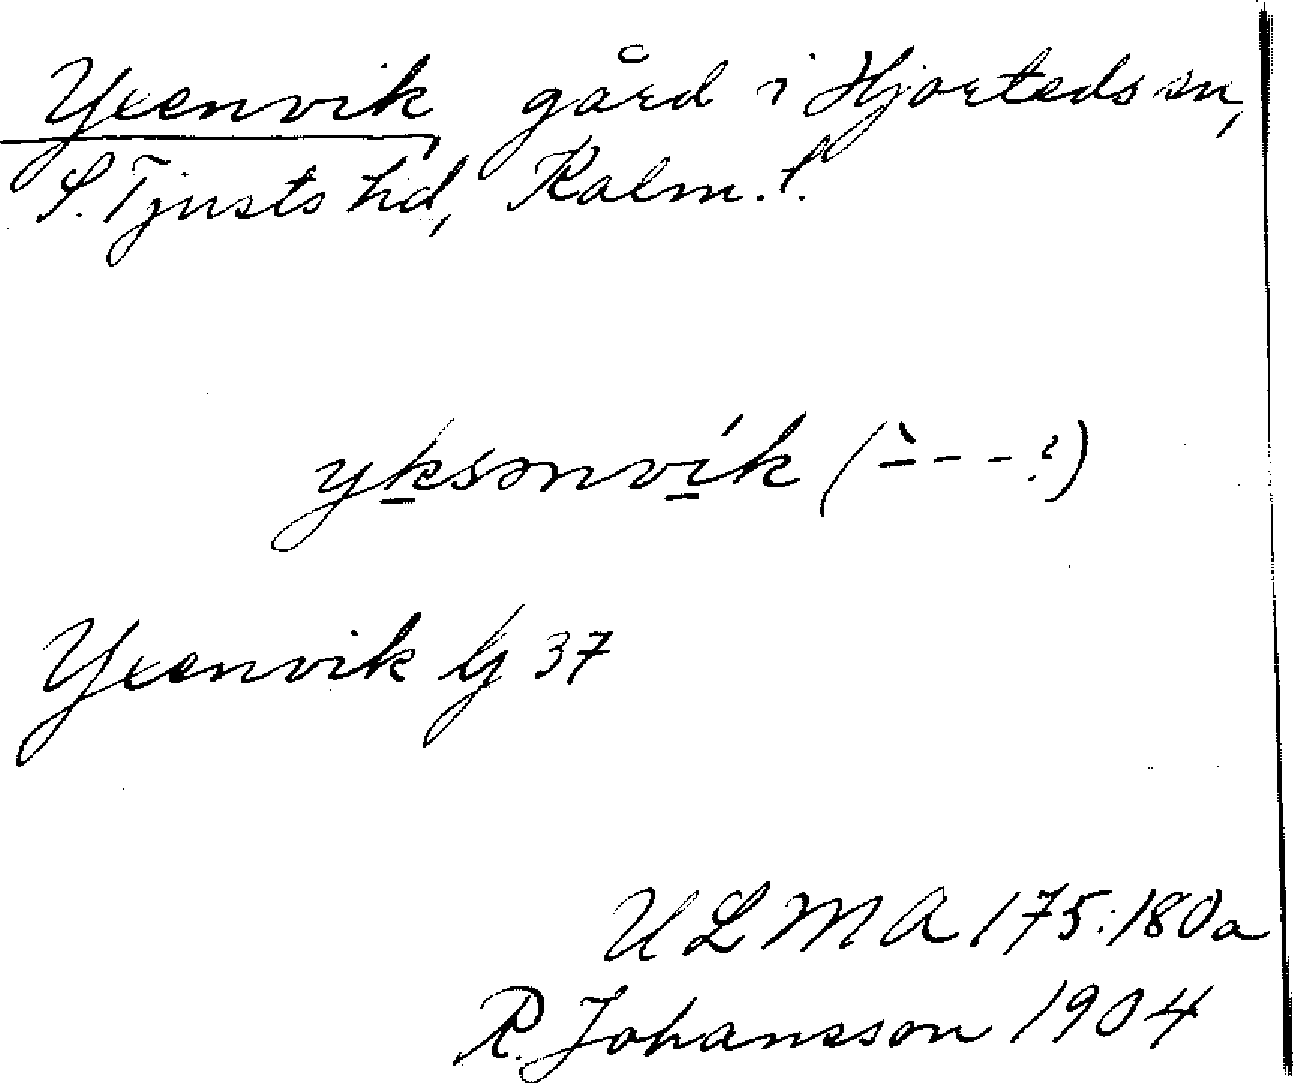 Yxenvik, gård i Hjorteds sn,
S. Tjusts hd, Kalm. l.
yksənvik (`– - - ?)
Yxenvik G 37
ULMA 175:180a
R. Johansson 1904